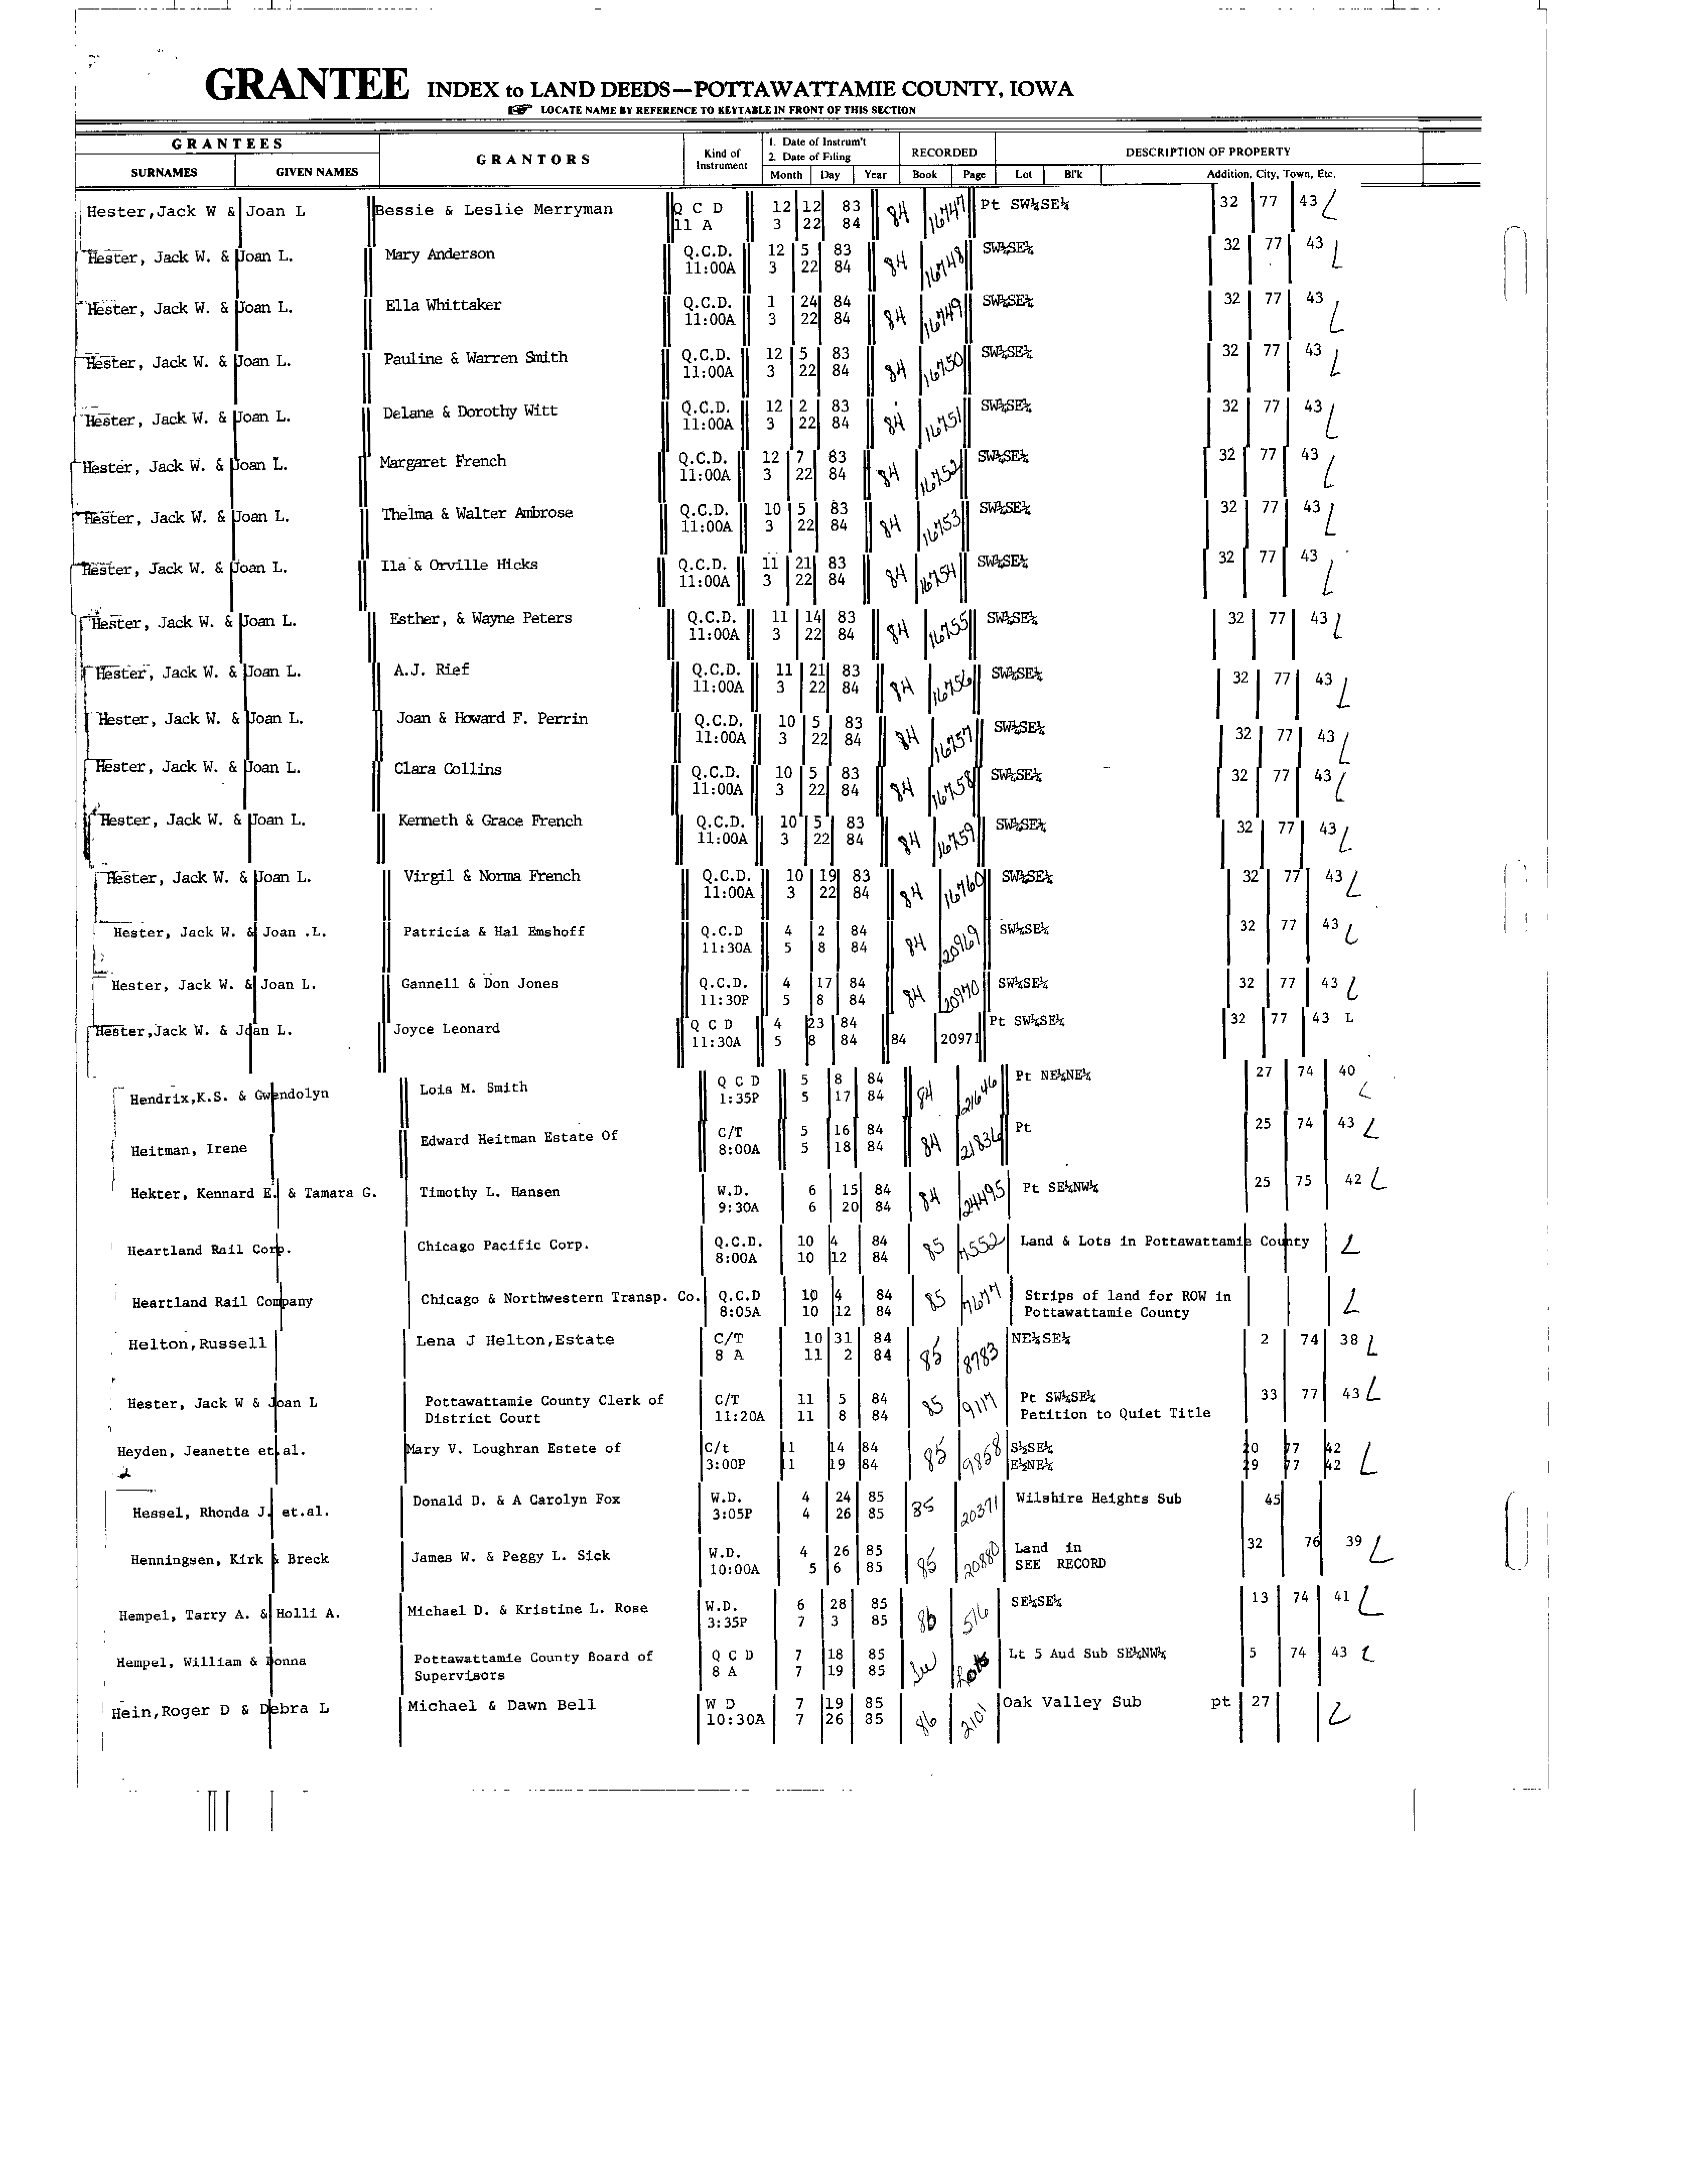 GRANTEE INDEX to LAND DEEDS—POTTAWATTAMIE COUNTY, IOWA
☞ LOCATE NAME BY REFERENCE TO KEYTABLE IN FRONT OF THIS SECTION
GRANTEES GRANTORS Kind of Instrument 1. Date of Instrum't 2. Date of Filing RECORDED DESCRIPTION OF PROPERTY
SURNAMES GIVEN NAMES Month Day Year Book Page Lot Bl'k Addition, City, Town, Etc.
Hester,Jack W & Joan L Bessie & Leslie Merryman Q C D 12 12 83 84 16747 Pt SW¼SE¼ 32 77 43 L
11 A 3 22 84
Hester, Jack W. & Joan L. Mary Anderson Q.C.D. 12 5 83 84 16748 SW¼SE¼ 32 77 43 L
11:00A 3 22 84
Hester, Jack W. & Joan L. Ella Whittaker Q.C.D. 1 24 84 84 16749 SW¼SE¼ 32 77 43 L
11:00A 3 22 84
Hester, Jack W. & Joan L. Pauline & Warren Smith Q.C.D. 12 5 83 84 16750 SW¼SE¼ 32 77 43 L
11:00A 3 22 84
Hester, Jack W. & Joan L. Delane & Dorothy Witt Q.C.D. 12 2 83 84 16751 SW¼SE¼ 32 77 43 L
11:00A 3 22 84
Hester, Jack W. & Joan L. Margaret French Q.C.D. 12 7 83 84 16752 SW¼SE¼ 32 77 43 L
11:00A 3 22 84
Hester, Jack W. & Joan L. Thelma & Walter Ambrose Q.C.D. 10 5 83 84 16753 SW¼SE¼ 32 77 43 L
11:00A 3 22 84
Hester, Jack W. & Joan L. Ila & Orville Hicks Q.C.D. 11 21 83 84 16754 SW¼SE¼ 32 77 43 L
11:00A 3 22 84
Hester, Jack W. & Joan L. Esther, & Wayne Peters Q.C.D. 11 14 83 84 16755 SW¼SE¼ 32 77 43 L
11:00A 3 22 84
Hester, Jack W. & Joan L. A.J. Rief Q.C.D. 11 21 83 84 16756 SW¼SE¼ 32 77 43 L
11:00A 3 22 84
Hester, Jack W. & Joan L. Joan & Howard F. Perrin Q.C.D. 10 5 83 84 16757 SW¼SE¼ 32 77 43 L
11:00A 3 22 84
Hester, Jack W. & Joan L. Clara Collins Q.C.D. 10 5 83 84 16758 SW¼SE¼ 32 77 43 L
11:00A 3 22 84
Hester, Jack W. & Joan L. Kenneth & Grace French Q.C.D. 10 5 83 84 16759 SW¼SE¼ 32 77 43 L
11:00A 3 22 84
Hester, Jack W. & Joan L. Virgil & Norma French Q.C.D. 10 19 83 84 16760 SW¼SE¼ 32 77 43 L
11:00A 3 22 84
Hester, Jack W. & Joan .L. Patricia & Hal Emshoff Q.C.D 4 2 84 84 20969 SW¼SE¼ 32 77 43 L
11:30A 5 8 84
Hester, Jack W. & Joan L. Gannell & Don Jones Q.C.D. 4 17 84 84 20970 SW¼SE¼ 32 77 43 L
11:30P 5 8 84
Hester,Jack W. & Joan L. Joyce Leonard Q C D 4 23 84 84 20971 Pt SW¼SE¼ 32 77 43 L
11:30A 5 8 84
Hendrix,K.S. & Gwendolyn Lois M. Smith Q C D 5 8 84 84 21646 Pt NE¼NE¼ 27 74 40 L
1:35P 5 17 84
Heitman, Irene Edward Heitman Estate Of C/T 5 16 84 84 21836 Pt 25 74 43 L
8:00A 5 18 84
Hekter, Kennard E. & Tamara G. Timothy L. Hansen W.D. 6 15 84 84 24495 Pt SE¼NW¼ 25 75 42 L
9:30A 6 20 84
Heartland Rail Corp. Chicago Pacific Corp. Q.C.D. 10 4 84 85 7552 Land & Lots in Pottawattamie County L
8:00A 10 12 84
Heartland Rail Company Chicago & Northwestern Transp. Co. Q.C.D 10 4 84 85 7677 Strips of land for ROW in L
8:05A 10 12 84 Pottawattamie County
Helton,Russell Lena J Helton,Estate C/T 10 31 84 85 8783 NE¼SE¼ 2 74 38 L
8 A 11 2 84
Hester, Jack W & Joan L Pottawattamie County Clerk of C/T 11 5 84 85 9117 Pt SW¼SE¼ 33 77 43 L
District Court 11:20A 11 8 84 Petition to Quiet Title
Heyden, Jeanette et al. Mary V. Loughran Estete of C/t 11 14 84 85 9858 S½SE¼ 20 77 42 L
3:00P 11 19 84 E½NE¼ 29 77 42
Hessel, Rhonda J. et.al. Donald D. & A Carolyn Fox W.D. 4 24 85 85 20371 Wilshire Heights Sub 45
3:05P 4 26 85
Henningsen, Kirk & Breck James W. & Peggy L. Sick W.D. 4 26 85 85 20880 Land in 32 76 39 L
10:00A 5 6 85 SEE RECORD
Hempel, Tarry A. & Holli A. Michael D. & Kristine L. Rose W.D. 6 28 85 86 516 SE¼SE¼ 13 74 41 L
3:35P 7 3 85
Hempel, William & Donna Pottawattamie County Board of Q C D 7 18 85 Lots Lt 5 Aud Sub SE¼NW¼ 5 74 43 L
Supervisors 8 A 7 19 85
Hein,Roger D & Debra L Michael & Dawn Bell W D 7 19 85 86 2101 Oak Valley Sub pt 27 L
10:30A 7 26 85